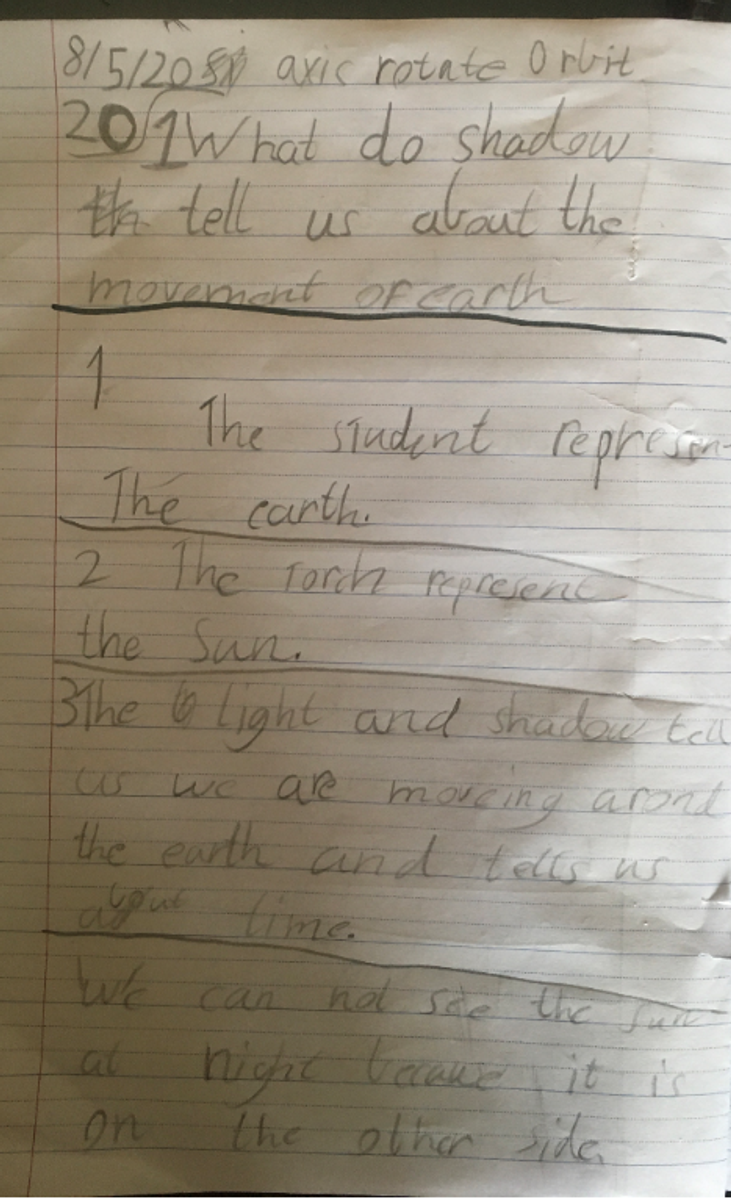 8/5/20 axic rotate Orbit
201What do shadow
tell us about the
movement of earth
1
The student represen-
The earth.
2 The Torch represent
the Sun.
3The light and shadow tell
us we are moveing arond
the earth and tells us
about time.
We can not see the sun
at night becaue it is
on the other side.